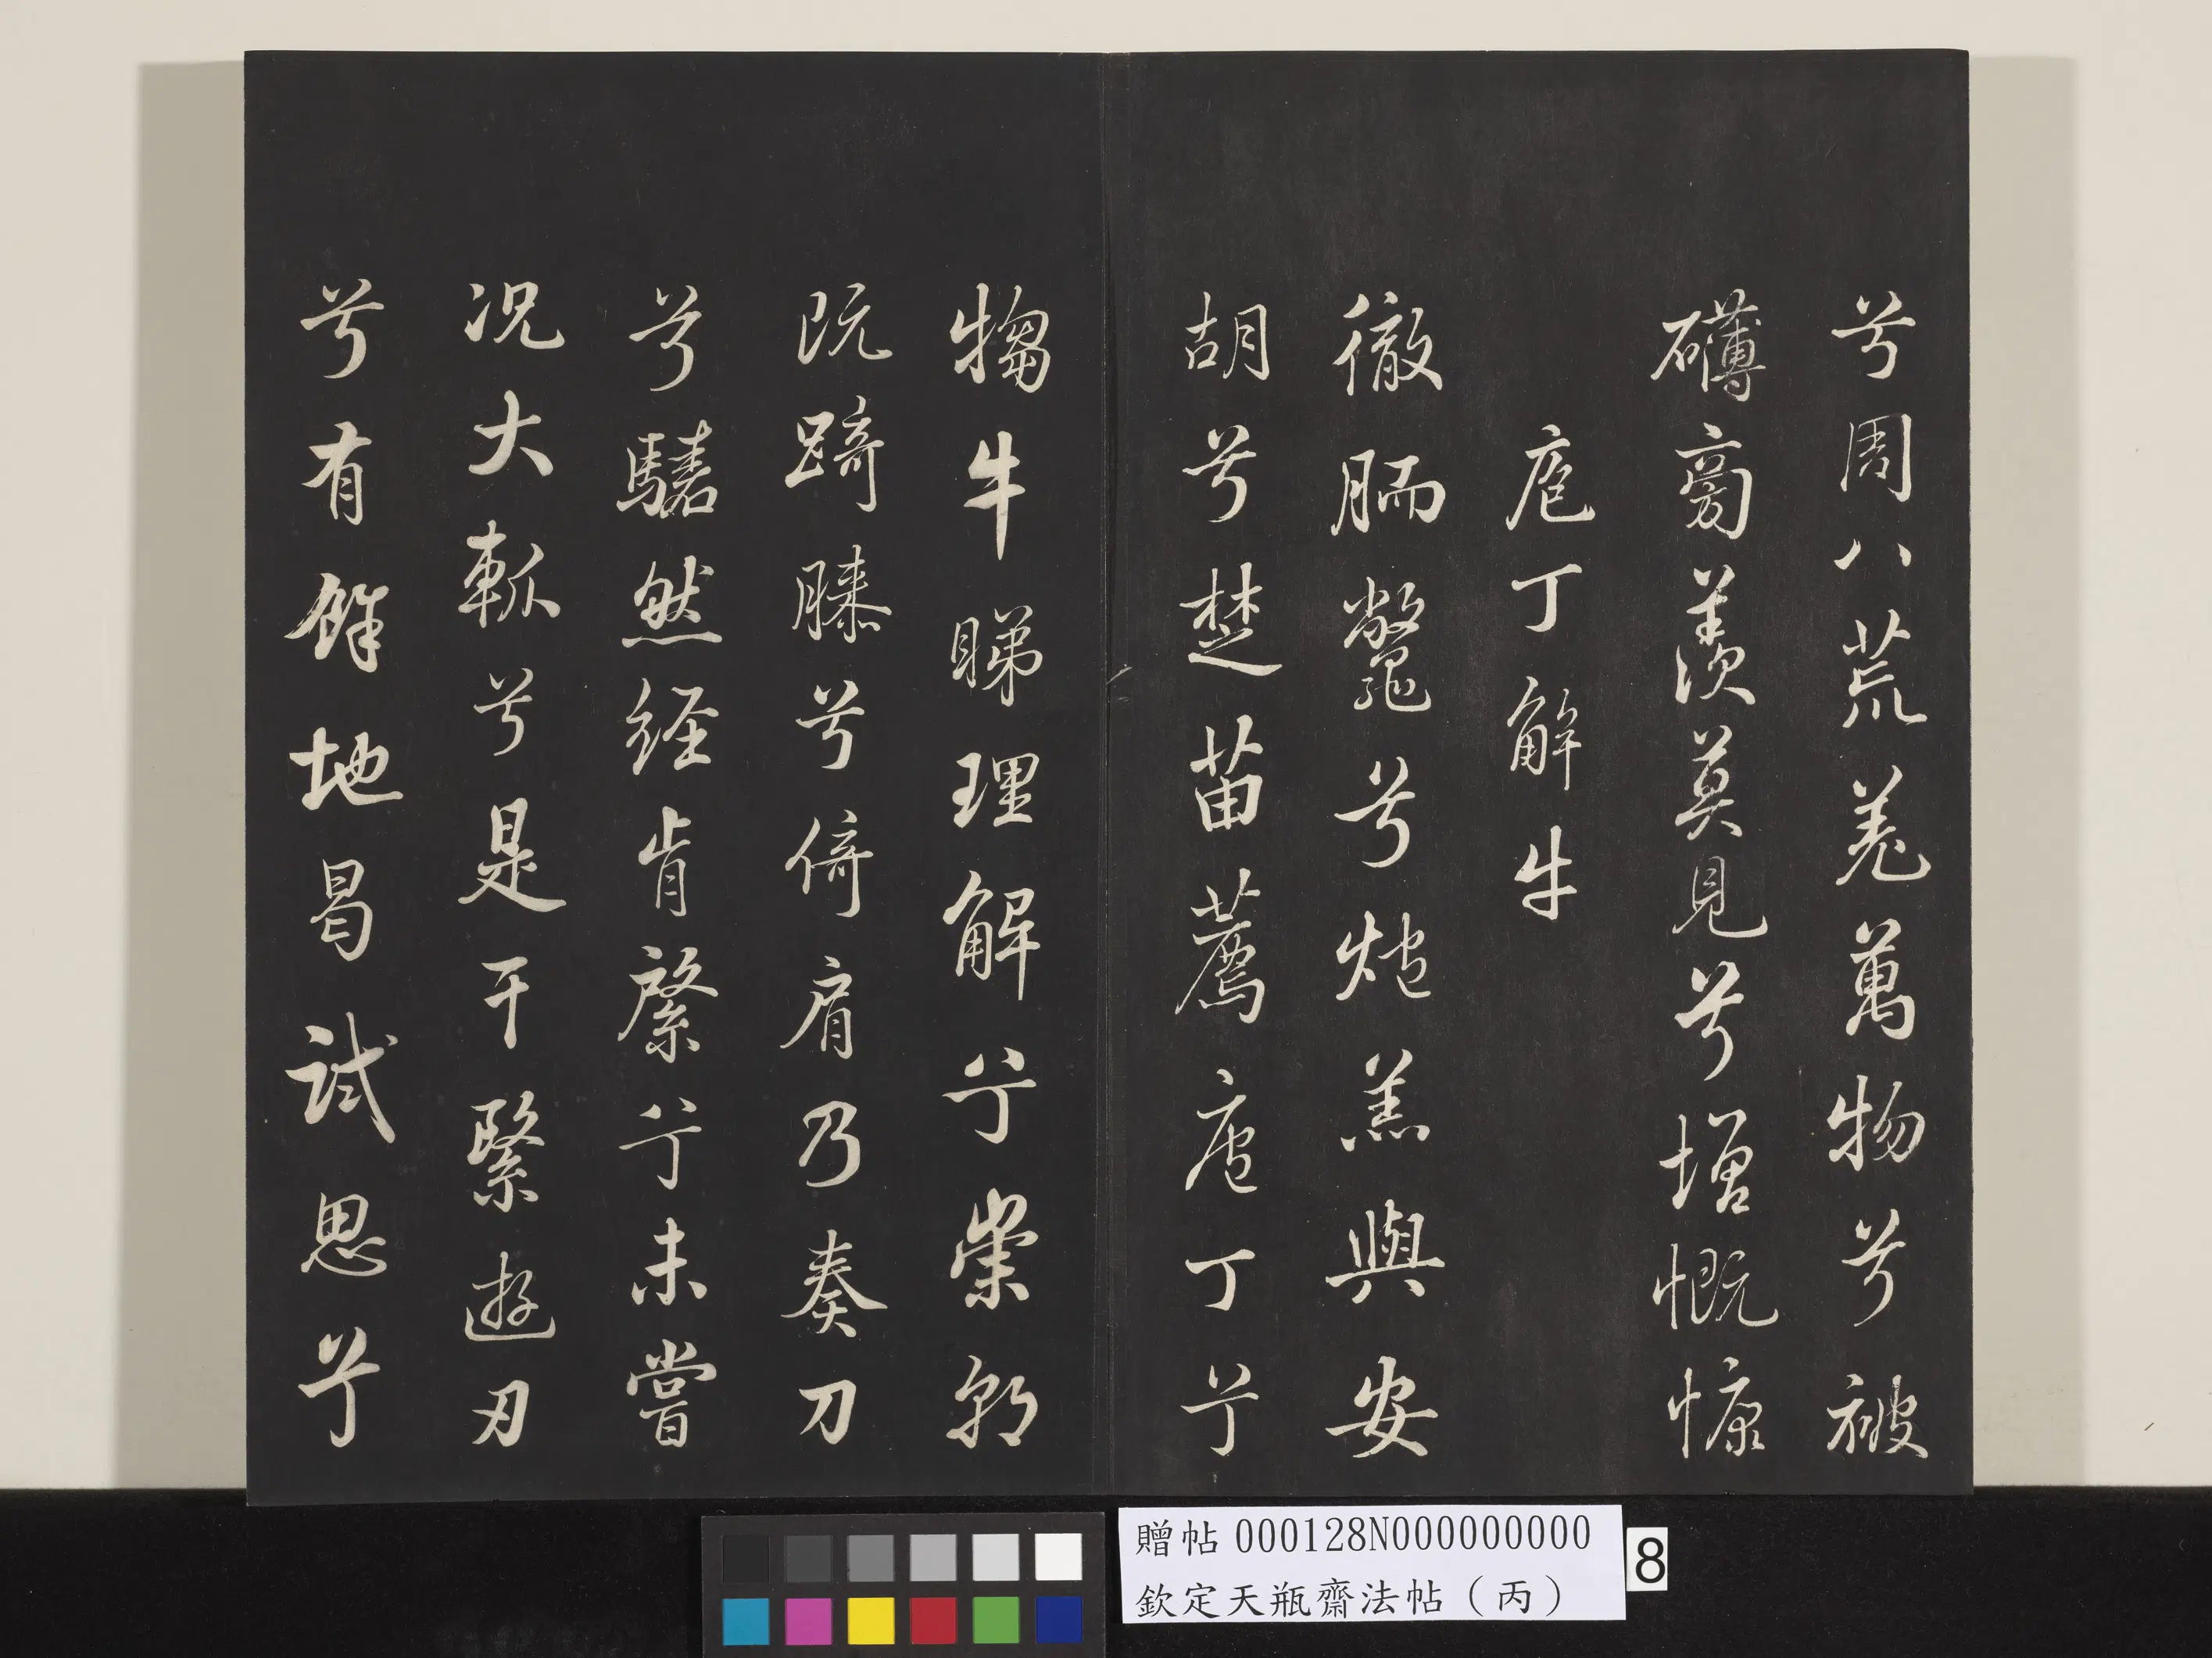 兮周八荒羌萬物兮被
礴旁羨莫見兮增慨慷
庖丁解牛
徹胹鼈兮炮羔與安
胡兮楚苗薦庖丁兮
犓牛睇理解兮崇朝
既踦膝兮倚肩乃奏刀
兮騞然經肯綮兮未嘗
况大軱兮是干緊遊刃
兮有餘地曷試思兮
贈帖 000128N000000000
欽定天瓶齋法帖（丙）
8